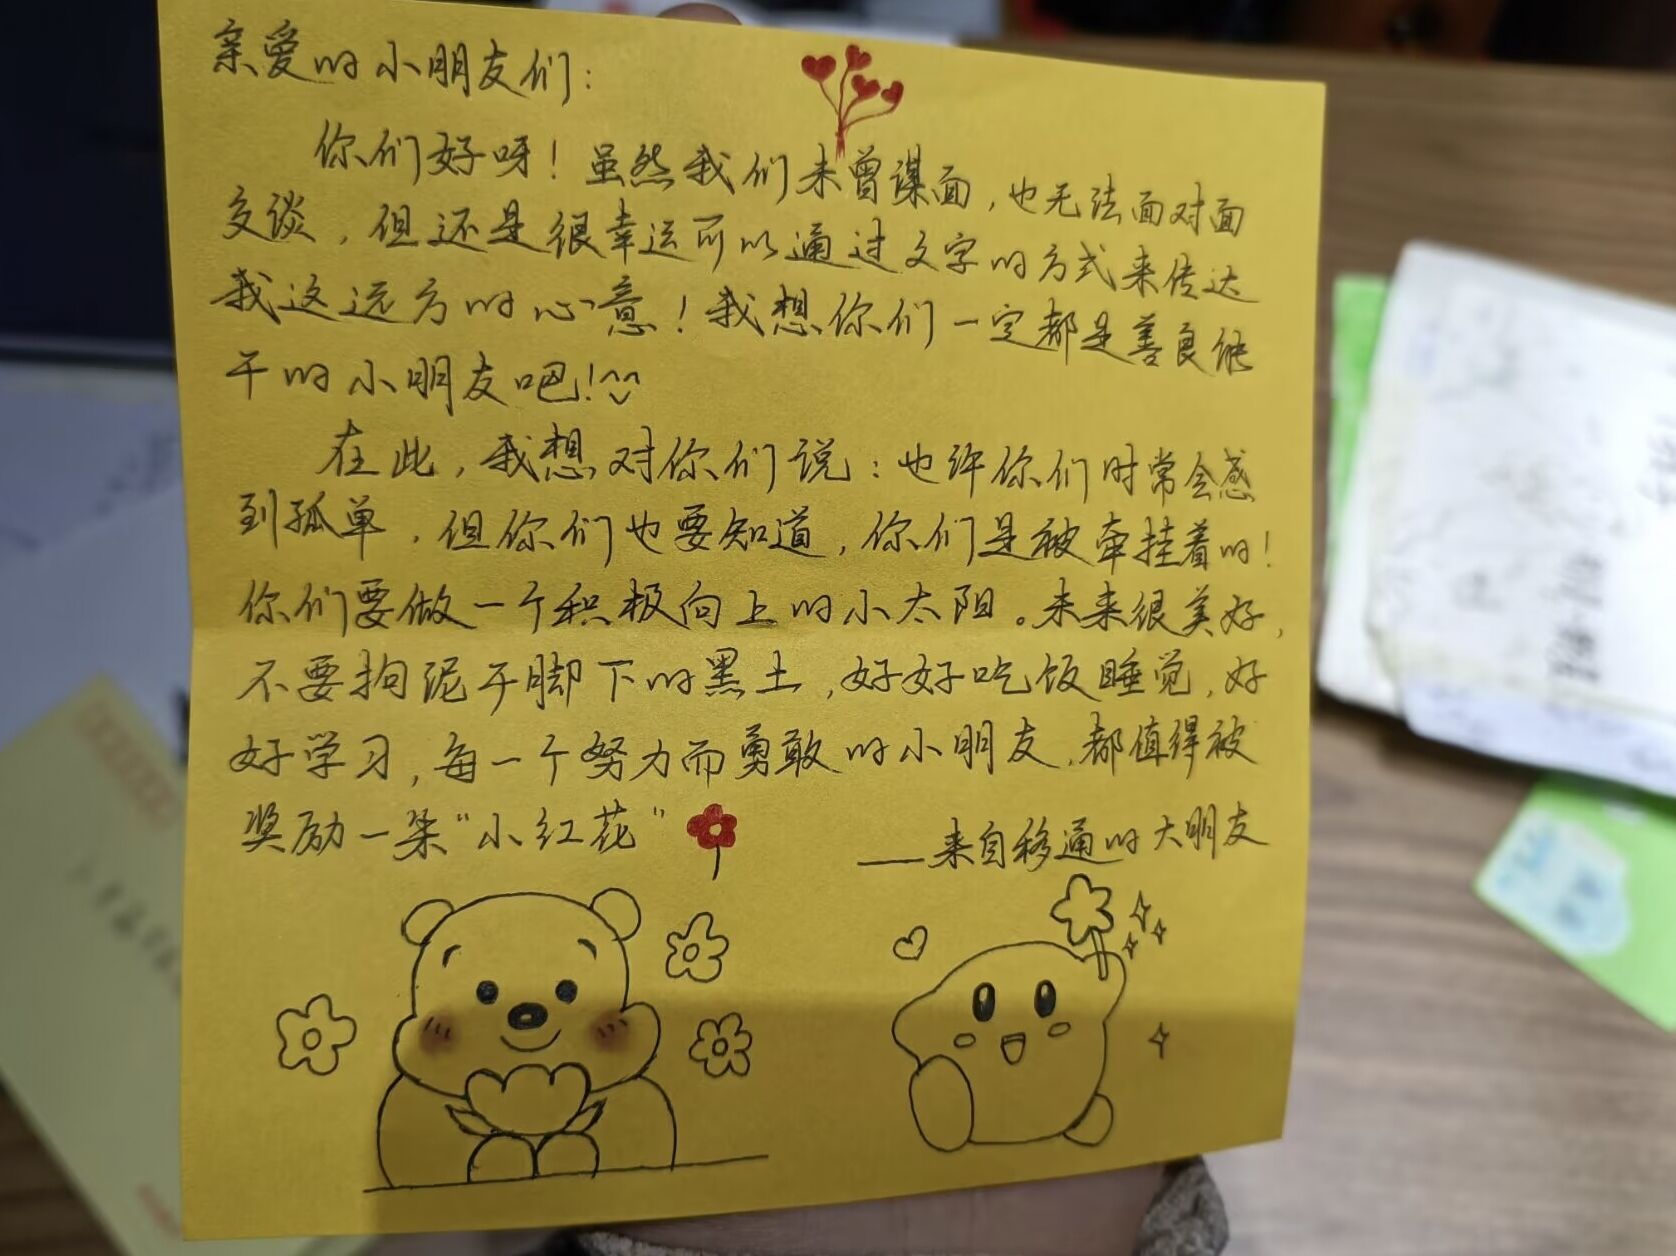 亲爱的小朋友们:
你们好呀!虽然我们未曾谋面,也无法面对面
交谈,但还是很幸运可以通过文字的方式来传达
我这远方的心意!我想你们一定都是善良能
干的小朋友吧!^^
在此,我想对你们说:也许你们时常会感
到孤单,但你们也要知道,你们是被牵挂着的!
你们要做一个积极向上的小太阳。未来很美好,
不要拘泥于脚下的黑土,好好吃饭睡觉,好
好学习,每一个努力而勇敢的小朋友,都值得被
奖励一朵“小红花”
——来自移通的大朋友